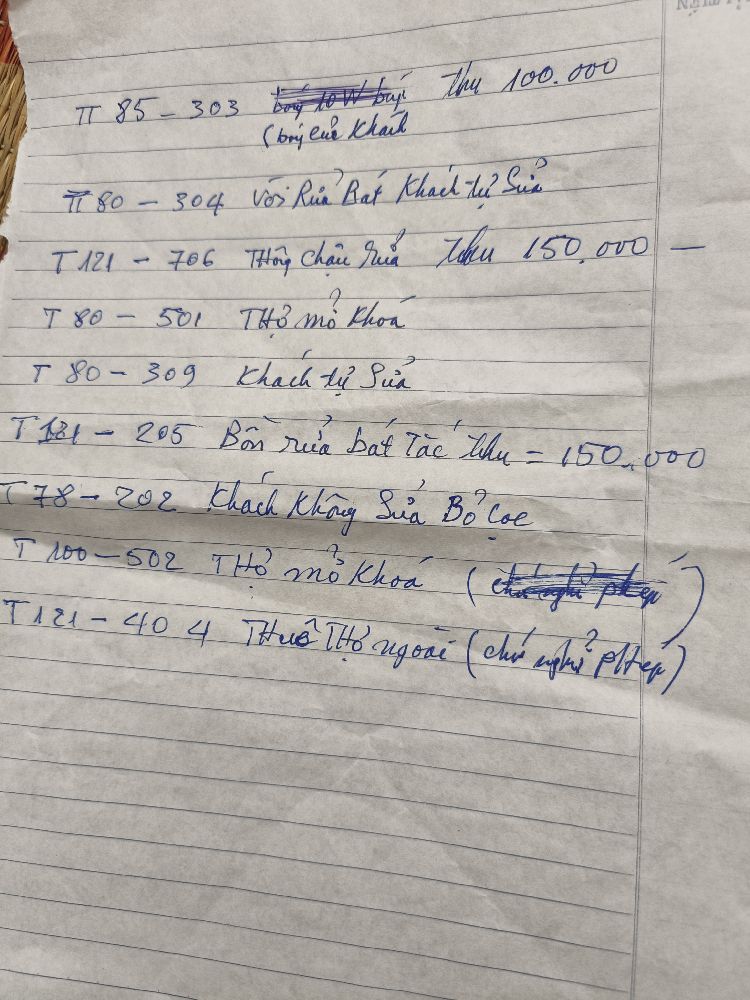 T 85 - 303 bóng 10W thu 100.000
(bóng của Khách
T 80 - 304 Vòi Rửa Bát Khách tự Sửa
T 121 - 706 Thông chậu rửa thu 150.000 —
T 80 - 501 Thợ mở khoá
T 80 - 309 Khách tự Sửa
T 121 - 205 Bồn rửa bát Tắc thu = 150.000
T 78 - 202 Khách Không Sửa Bỏ Cọc
T 100 - 502 Thợ mở Khoá (chú nghỉ phép)
T 121 - 404 Thuê Thợ ngoài (chú nghỉ phép)